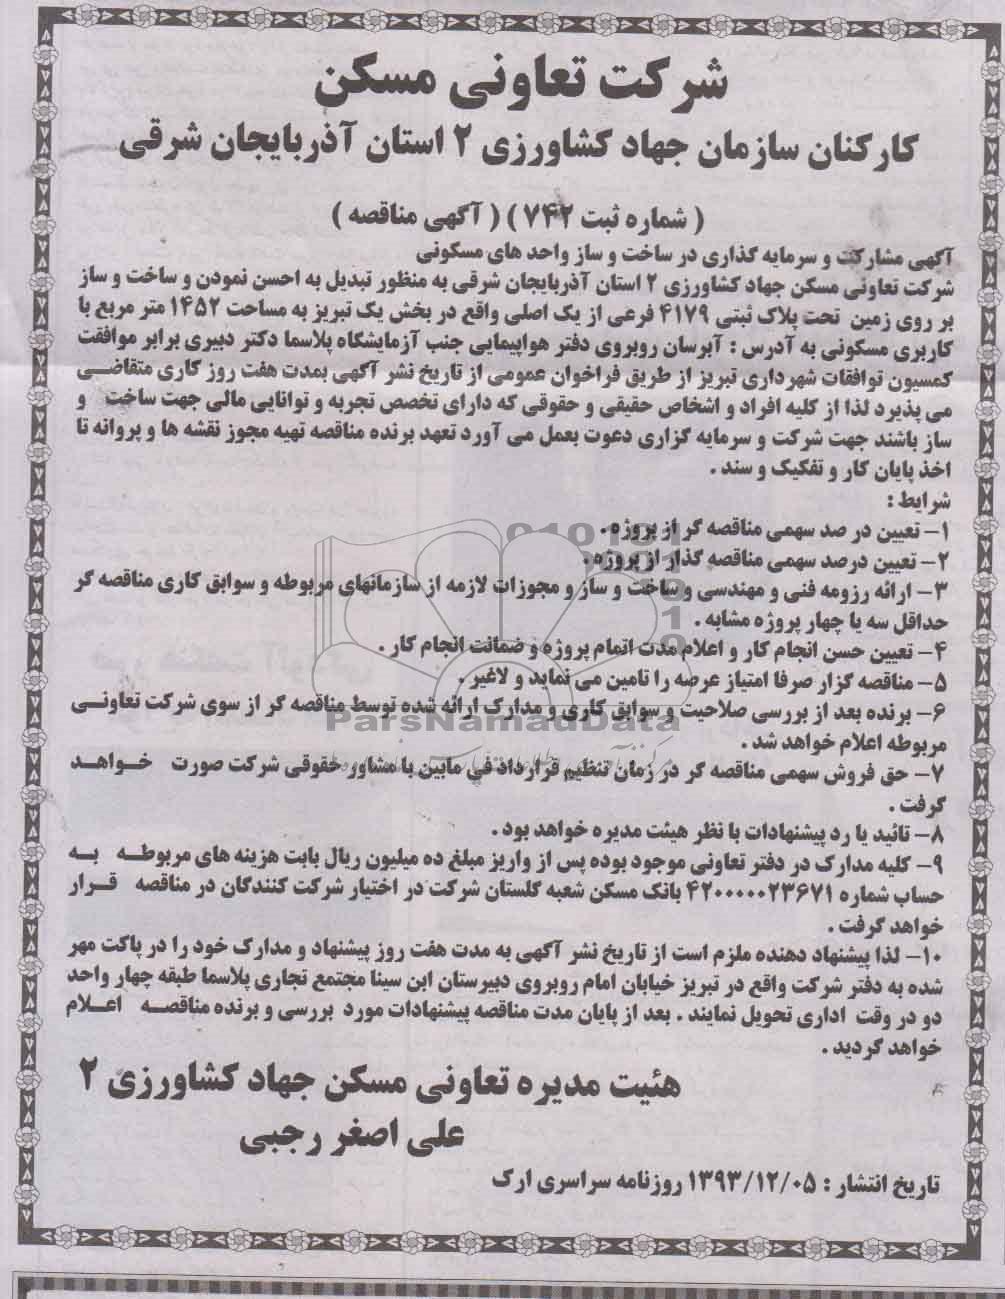 شرکت تعاونی مسکن
کارکنان سازمان جهاد کشاورزی ۲ استان آذربایجان شرقی
( شماره ثبت ۷۴۲ ) ( آگهی مناقصه )
آگهی مشارکت و سرمایه گذاری در ساخت و ساز واحد های مسکونی
شرکت تعاونی مسکن جهاد کشاورزی ۲ استان آذربایجان شرقی به منظور تبدیل به احسن نمودن و ساخت و ساز
بر روی زمین تحت پلاک ثبتی ۴۱۷۹ فرعی از یک اصلی واقع در بخش یک تبریز به مساحت ۱۴۵۲ متر مربع با
کاربری مسکونی به آدرس : آبرسان روبروی دفتر هواپیمایی جنب آزمایشگاه پلاسما دکتر دبیری برابر موافقت
کمسیون توافقات شهرداری تبریز از طریق فراخوان عمومی از تاریخ نشر آگهی بمدت هفت روز کاری متقاضی
می پذیرد لذا از کلیه افراد و اشخاص حقیقی و حقوقی که دارای تخصص تجربه و توانایی مالی جهت ساخت و
ساز باشند جهت شرکت و سرمایه گزاری دعوت بعمل می آورد تعهد برنده مناقصه تهیه مجوز نقشه ها و پروانه تا
اخذ پایان کار و تفکیک و سند .
شرایط :
۱- تعیین در صد سهمی مناقصه گر از پروژه .
۲- تعیین درصد سهمی مناقصه گذار از پروژه .
۳- ارائه رزومه فنی و مهندسی و ساخت و ساز و مجوزات لازمه از سازمانهای مربوطه و سوابق کاری مناقصه گر
حداقل سه یا چهار پروژه مشابه .
۴- تعیین حسن انجام کار و اعلام مدت اتمام پروژه و ضمانت انجام کار .
۵- مناقصه گزار صرفا امتیاز عرصه را تامین می نماید و لاغیر .
۶- برنده بعد از بررسی صلاحیت و سوابق کاری و مدارک ارائه شده توسط مناقصه گر از سوی شرکت تعاونی
مربوطه اعلام خواهد شد .
ParsNamadData
۷- حق فروش سهمی مناقصه گر در زمان تنظیم قرارداد فی مابین با مشاور حقوقی شرکت صورت خواهد
گرفت .
۸- تائید یا رد پیشنهادات با نظر هیئت مدیره خواهد بود .
۹- کلیه مدارک در دفتر تعاونی موجود بوده پس از واریز مبلغ ده میلیون ریال بابت هزینه های مربوطه به
حساب شماره ۴۲۰۰۰۰۰۲۳۶۷۱ بانک مسکن شعبه گلستان شرکت در اختیار شرکت کنندگان در مناقصه قرار
خواهد گرفت .
۱۰- لذا پیشنهاد دهنده ملزم است از تاریخ نشر آگهی به مدت هفت روز پیشنهاد و مدارک خود را در پاکت مهر
شده به دفتر شرکت واقع در تبریز خیابان امام روبروی دبیرستان ابن سینا مجتمع تجاری پلاسما طبقه چهار واحد
دو در وقت اداری تحویل نمایند . بعد از پایان مدت مناقصه پیشنهادات مورد بررسی و برنده مناقصه اعلام
خواهد گردید .
هئیت مدیره تعاونی مسکن جهاد کشاورزی ۲
علی اصغر رجبی
تاریخ انتشار : ۱۳۹۳/۱۲/۰۵ روزنامه سراسری ارک